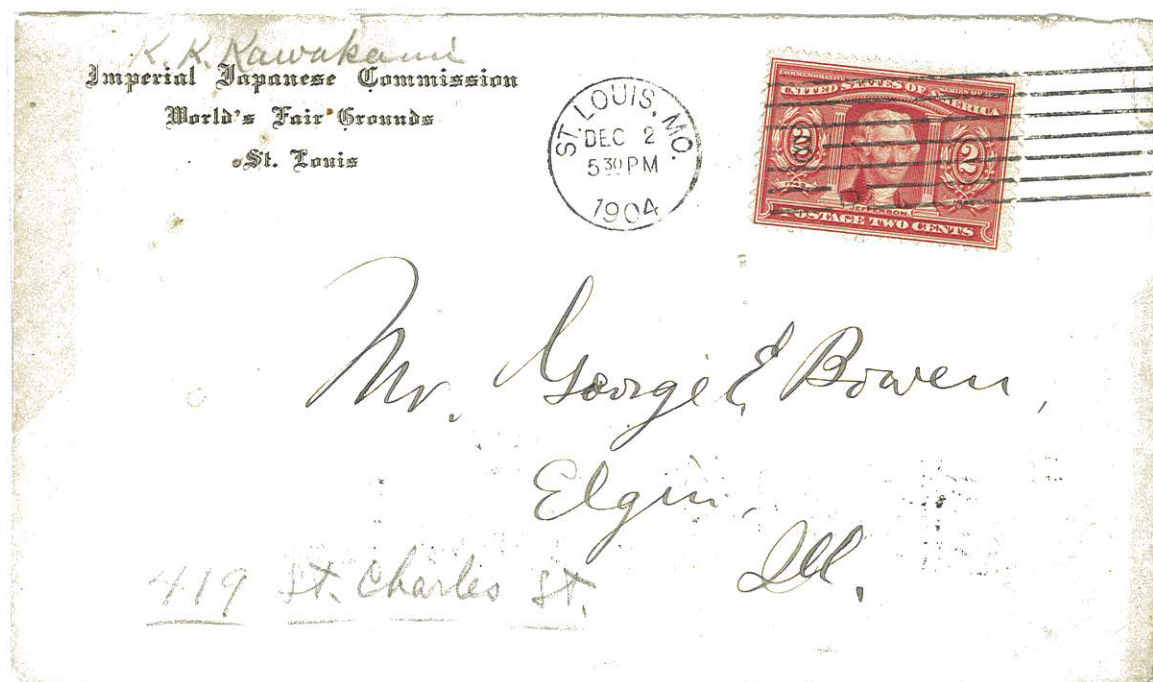 K. K. Kawakami
Imperial Japanese Commission
World's Fair Grounds
St. Louis
ST. LOUIS, MO.
DEC 2
5 30 PM
1904
UNITED STATES OF AMERICA
2
2
JEFFERSON
POSTAGE TWO CENTS
Mr. George E. Bowen,
Elgin,
Ill.
419 St. Charles St.